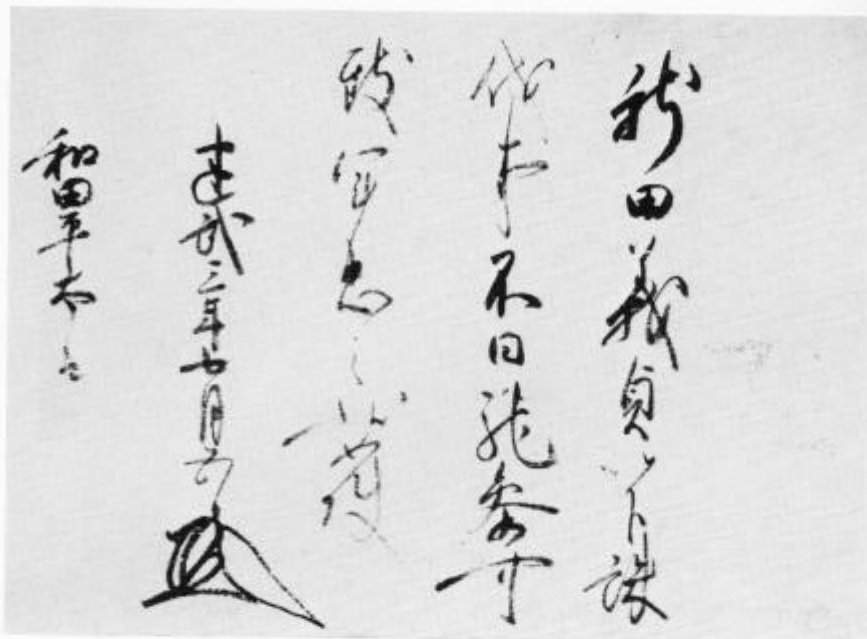 新田義貞以下誅
伐事不日馳参可
致軍忠之状如件
建武三年七月
和田平太殿